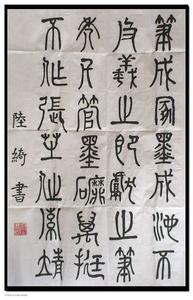 筆成冢墨成池不
及羲之即獻之筆
禿千管墨磨萬挺
不作張芝作索靖
陸綺書